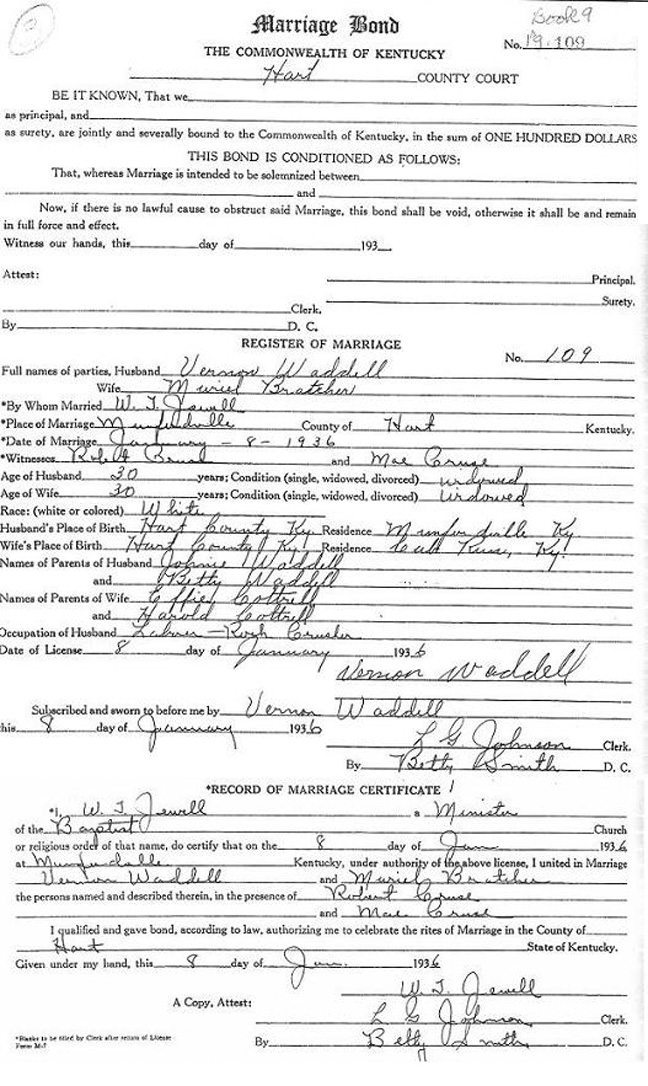 Book 9
Marriage Bond
No. 19-109
THE COMMONWEALTH OF KENTUCKY
Hart COUNTY COURT
BE IT KNOWN, That we
as principal, and
as surety, are jointly and severally bound to the Commonwealth of Kentucky, in the sum of ONE HUNDRED DOLLARS
THIS BOND IS CONDITIONED AS FOLLOWS:
That, whereas Marriage is intended to be solemnized between
and
Now, if there is no lawful cause to obstruct said Marriage, this bond shall be void, otherwise it shall be and remain
in full force and effect.
Witness our hands, this day of 193
Attest: Principal.
Clerk. Surety.
By D. C.
REGISTER OF MARRIAGE
No. 109
Full names of parties, Husband Vernon Waddell
Wife Muriel Bratcher
*By Whom Married W. T. Jewell
*Place of Marriage Munfordville County of Hart Kentucky.
*Date of Marriage January - 8 - 1936
*Witnesses Robert and Mae Cruse
Age of Husband 30 years; Condition (single, widowed, divorced) widowed
Age of Wife 30 years; Condition (single, widowed, divorced) widowed
Race: (white or colored) White
Husband's Place of Birth Hart County Ky. Residence Munfordville Ky.
Wife's Place of Birth Hart County Ky. Residence Ky.
Names of Parents of Husband Johnie Waddell
and Betty Waddell
Names of Parents of Wife Effie Cottrell
and Harold Cottrell
Occupation of Husband Labor - Rock Crusher
Date of License 8 day of January 1936
Vernon Waddell
Subscribed and sworn to before me by Vernon Waddell
this 8 day of January 1936
L G Johnson Clerk.
By Betty Smith D. C.
*RECORD OF MARRIAGE CERTIFICATE
*I, W. T. Jewell a Minister
of the Baptist Church
or religious order of that name, do certify that on the 8 day of Jan 1936
at Munfordville Kentucky, under authority of the above license, I united in Marriage
Vernon Waddell and Muriel Bratcher
the persons named and described therein, in the presence of Robert Cruse
and Mae Cruse
I qualified and gave bond, according to law, authorizing me to celebrate the rites of Marriage in the County of
Hart State of Kentucky.
Given under my hand, this 8 day of Jan. 1936
W. T. Jewell
A Copy, Attest: L G Johnson Clerk.
*Blanks to be filled by Clerk after return of License
Form M-7
By Betty Smith D. C.